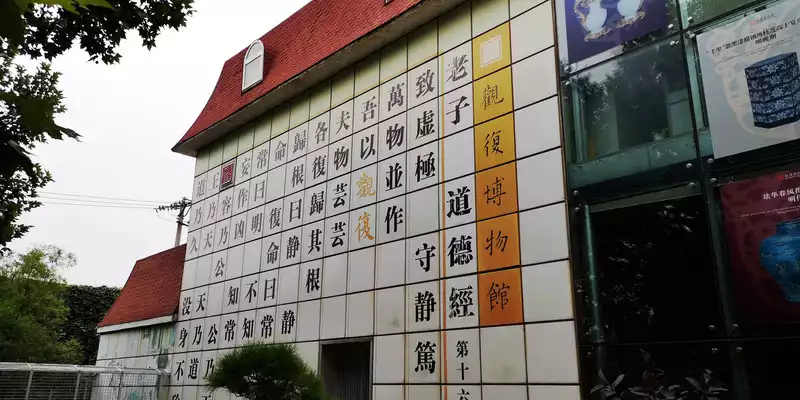 觀復博物館
老子 道德經 第十六
致虛極 守静篤
萬物並作
吾以觀復
夫物芸芸
各復歸其根
歸根曰静 静
命 復命曰常
常曰明 不知
妄作凶 知常
容乃公 公乃
王乃天 天乃道
道乃久 没身不
明晚期